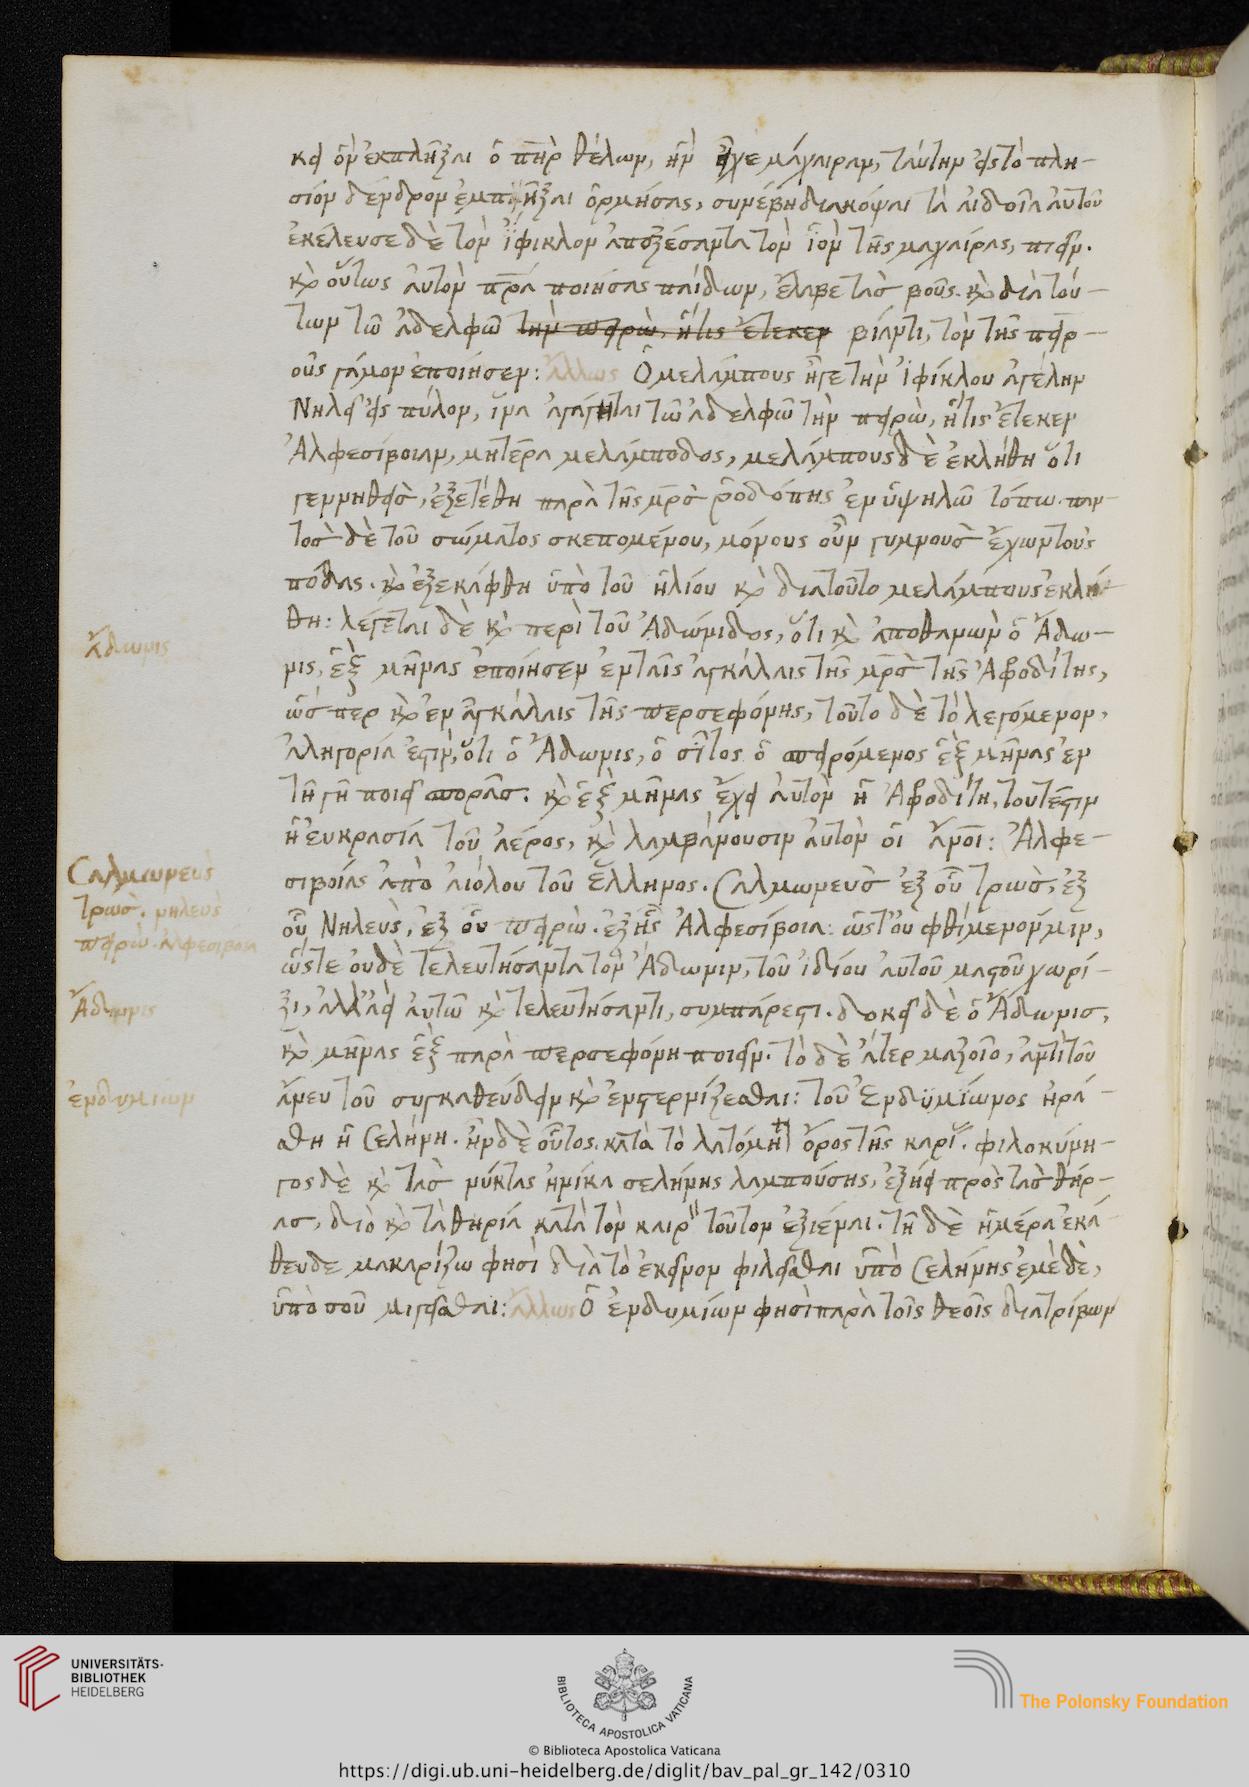 κει ὃν ἐκπλῆξαι ὁ πὴρ θέλων, ἣν εἶχε μάχαιραν, ταύτην εἰς τὸ πλη-
σίον δένδρον ἐμπῆξαι ὁρμήσας, συνέβη διακόψαι τὰ αἰδοῖα αὐτοῦ
ἐκέλευσε δὲ τὸν ἴφικλον ἀποξέσαντα τὸν ἰὸν τῆς μαχαίρας, πιεῖν.
καὶ οὕτως αὐτὸν πρα ποιήσας παίδων, ἔλαβε τὰς βοῦς. καὶ διὰ τού-
των τῶ ἀδελφῶ τὴν πειρὼ, ἥτις ἔτεκεν βίαντι, τὸν τῆς πειρ-
οῦς γάμον ἐποίησεν: Ἄλλως Ὁ μελάμπους ἦγε τὴν ἰφίκλου ἀγέλην
Νηλεῖ εἰς πύλον, ἵνα ἀγάγηται τῶ ἀδελφῶ τὴν πειρὼ, ἥτις ἔτεκεν
Ἀλφεσίβοιαν, μητέρα μελάμποδος, μελάμπους δὲ ἐκλήθη ὅτι
γεννηθεὶς, ἐξετέθη παρὰ τῆς μρὸς ῥοδόπης ἐν ὑψηλῶ τόπω. παν
τὸς δὲ τοῦ σώματος σκεπομένου, μόνους οὖν γυμνοὺς ἔχων τοὺς
πόδας. καὶ ἐξεκάφθη ὑπὸ τοῦ ἡλίου καὶ διατοῦτο μελάμπους ἐκλή
θη: λέγεται δὲ καὶ περὶ τοῦ Ἀδώνιδος, ὅτι καὶ ἀποθανὼν ὁ Ἄδω-
Ἄδωνις
νις, ἓξ μῆνας ἐποίησεν ἐν ταῖς ἀγκάλαις τῆς μρὸς τῆς Ἀφροδίτης,
ὥσπερ καὶ ἐν ἀγκάλαις τῆς περσεφόνης, τοῦτο δὲ τὸ λεγόμενον,
ἀλληγορία ἐστὶν, ὅτι ὁ Ἄδωνις, ὁ σῖτος ὁ σπειρόμενος ἓξ μῆνας ἐν
τῆ γῆ ποιεῖ σπορᾶς. καὶ ἓξ μῆνας ἔχει αὐτὸν ἡ Ἀφροδίτη, τουτέστιν
ἡ εὐκρασία τοῦ ἀέρος, καὶ λαμβάνουσιν αὐτὸν οἱ ἄνοι: Ἀλφε-
Σαλμωνεὺς
σιβοίας ἀπὸ αἰόλου τοῦ ἕλληνος. Σαλμωνεὺς ἐξ οὗ τρωὸς, ἐξ
τρωὸς. νηλεὺς
οὗ Νηλεὺς, ἐξ οὗ πειρὼ. ἐξ ἧς Ἀλφεσίβοια: ὥστ' οὐ φθίμενόν μιν,
πειρὼ. ἀλφεσιβοια
ὥστε οὐδὲ τελευτήσαντα τὸν Ἄδωνιν, τοῦ ἰδίου αὐτοῦ μαστοῦ χωρί-
ζει, ἀλλ' ἀεὶ αὐτῶ καὶ τελευτήσαντι, συμπάρεστι. δοκεῖ δὲ ὁ Ἄδωνις,
Ἄδωνις
καὶ μῆνας ἓξ παρὰ περσεφόνη ποιεῖν. τὸ δὲ ἄτερ μαζοῖο, ἀντὶ τοῦ
ἄνευ τοῦ συγκαθεύδειν καὶ ἐνστερνίζεσθαι: τοῦ Ἐνδυμίωνος ἠρά-
ἐνδυμιων
σθη ἡ Σελήνη. ἦν δὲ οὗτος κατὰ τὸ λατόμην ὄρος τῆς καρι. φιλοκύνη-
γος δὲ καὶ τὰς νύκτας ἡνίκα σελήνης λαμπούσης, ἐξήει πρὸς τὰς θήρ-
ας, διὸ καὶ τὰ θηρία κατὰ τὸν καιρ τοῦτον ἐξιέναι. τῆ δὲ ἡμέρα ἐκά-
θευδε μακαρίζω φησὶ διὰ τὸ ἐκεῖνον φιλεῖσθαι ὑπὸ Σελήνης ἐμὲ δὲ,
ὑπὸ σοῦ μισεῖσθαι: Ἄλλως Ὁ ἐνδυμίων φησὶ παρὰ τοῖς θεοῖς διατρίβων
UNIVERSITÄTS-
BIBLIOTHEK
HEIDELBERG
BIBLIOTECA APOSTOLICA VATICANA
The Polonsky Foundation
© Biblioteca Apostolica Vaticana
https://digi.ub.uni-heidelberg.de/diglit/bav_pal_gr_142/0310